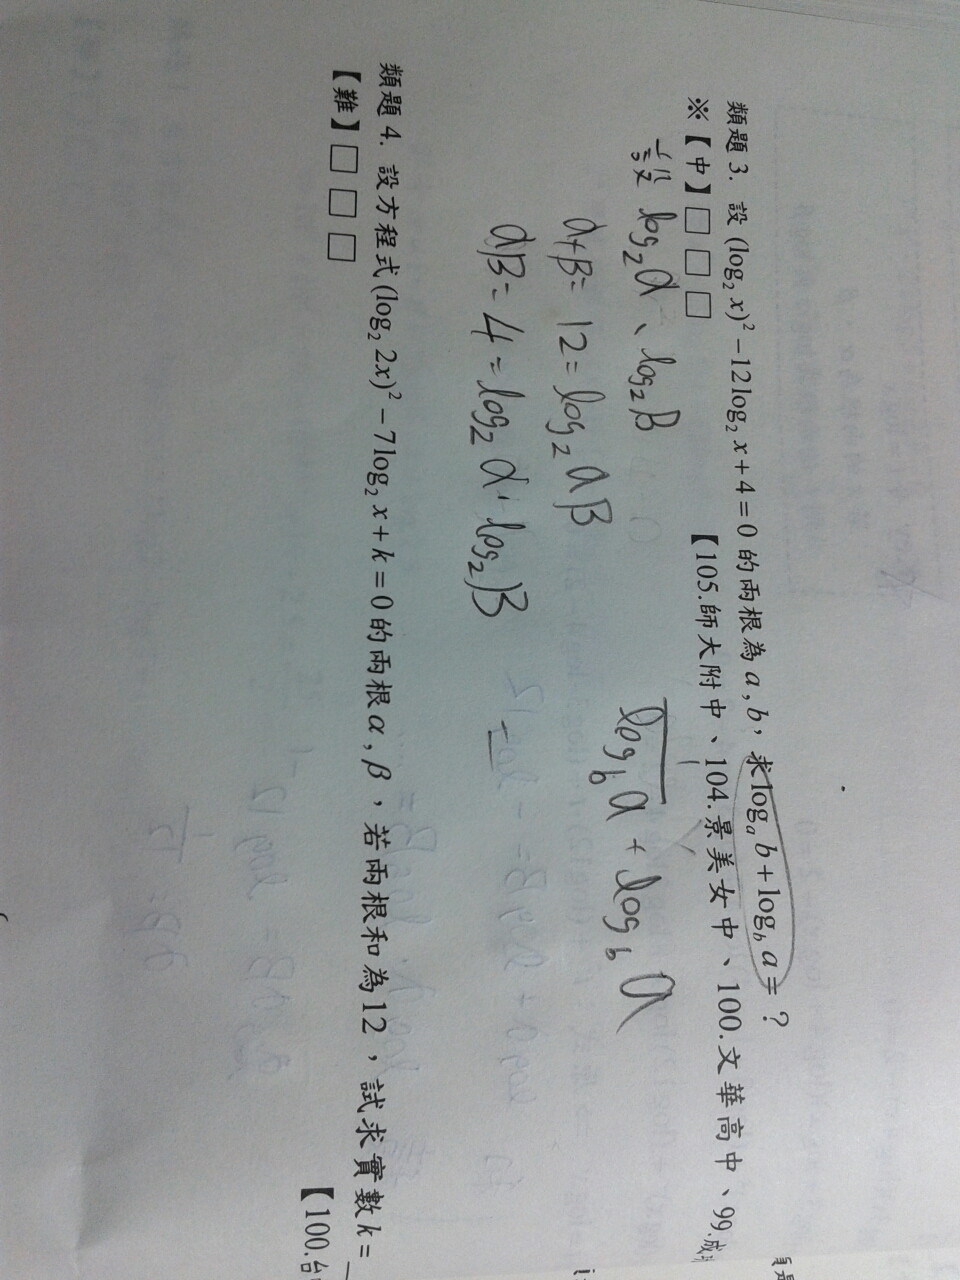 類題3. 設(log₂ x)² − 12log₂ x + 4 = 0 的兩根為 a , b，求 logₐ b + log_b a = ?
※【中】□ □ □
【105.師大附中、104.景美女中、100.文華高中、99.成
設 log₂α、log₂β
α+β= 12 = log₂ αβ
αβ= 4 = log₂ α · log₂ β
1/log_b a + log_b a
類題4. 設方程式(log₂ 2x)² − 7log₂ x + k = 0 的兩根 α , β，若兩根和為12，試求實數 k =
【難】□ □ □
【100.台